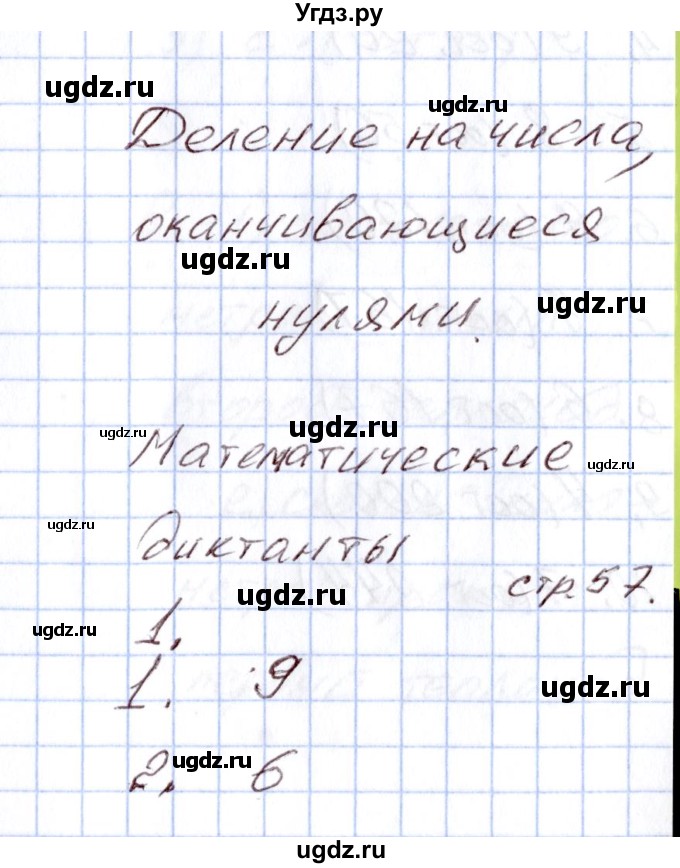 Угдз.ру
ugdz.ru
ugdz.ru
Деление на числа,
оканчивающиеся
ugdz.ru
ugdz.ru
нулями.
ugdz.ru
ugdz.ru
Математические
ugdz.ru
ugdz.ru
диктанты
стр. 57.
ugdz.ru
ugdz.ru
1.
1. 9
ugdz.ru
ugdz.ru
2. 6
©ugdz.ru